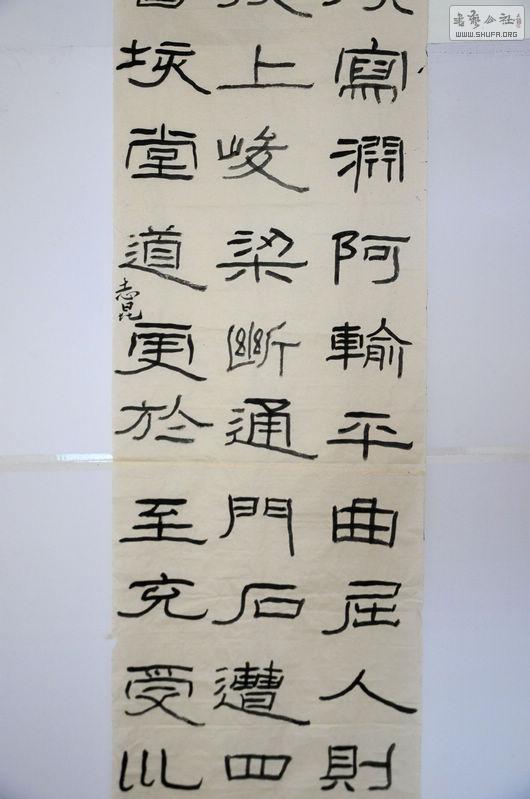 寫淵阿輸平曲屈人則
上峻梁斷通門石遭四
堂道更於至充受川
志昆
書藝公社
WWW.SHUFA.ORG